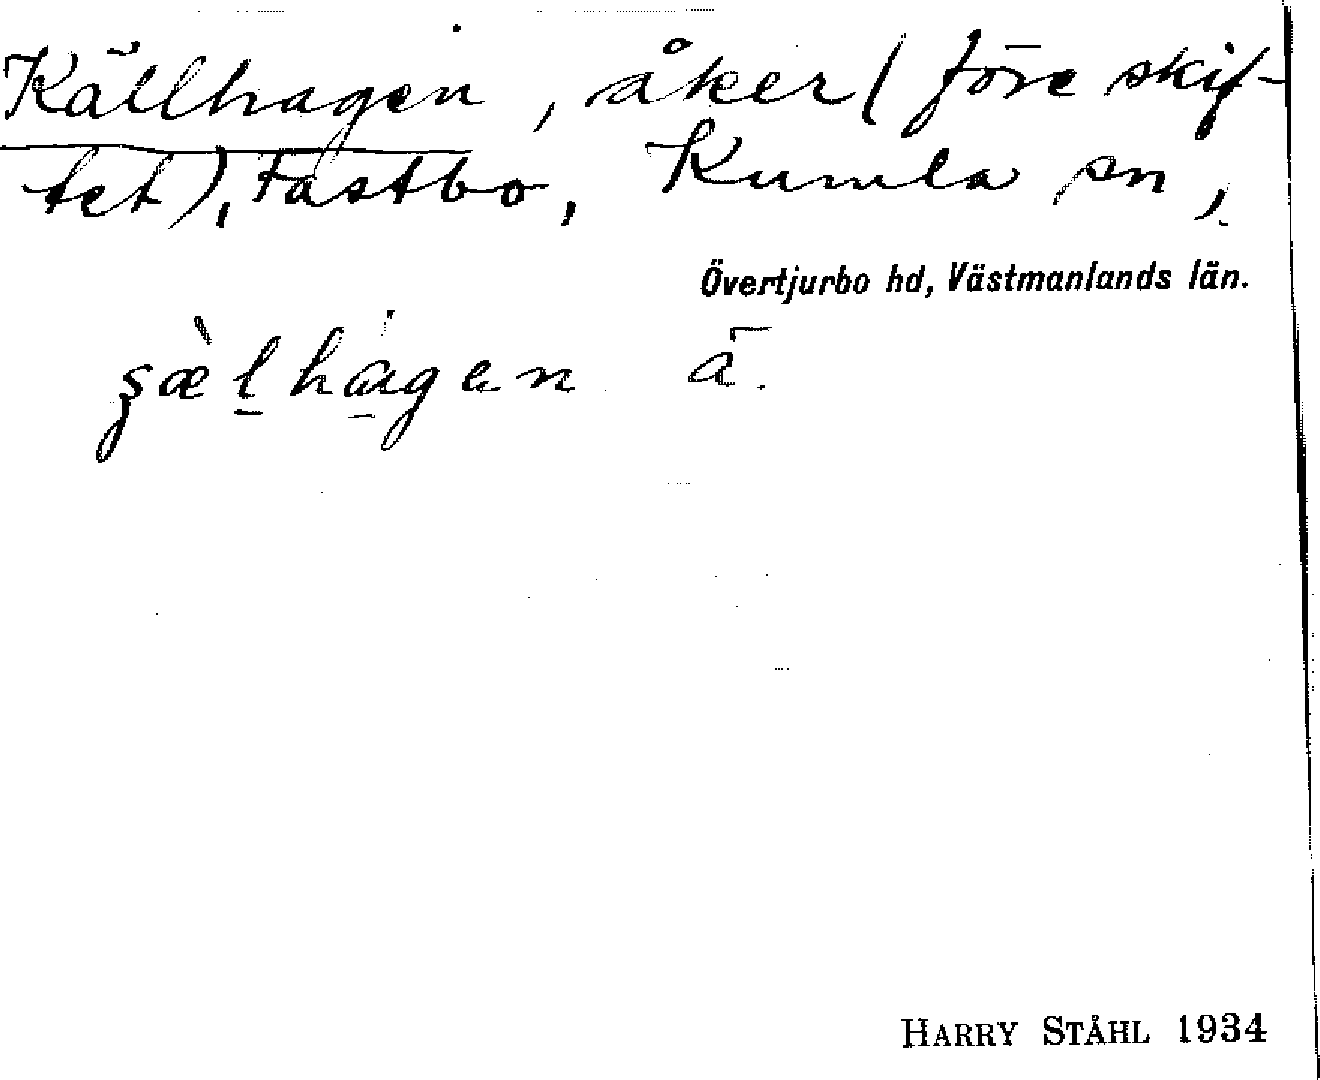 Källhagen, åker (före skif-
tet), Fastbo, Kumla sn,
Övertjurbo hd, Västmanlands län.
ʂæ̀l̠ha̠gen ā.
HARRY STÅHL 1934